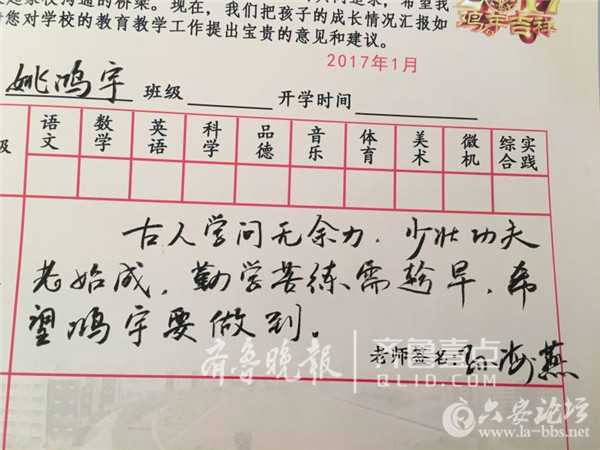 是家校沟通的桥梁。现在，我们把孩子的成长情况汇报如
您对学校的教育教学工作提出宝贵的意见和建议。
鸡年吉祥
2017年1月
姚鸿宇 班级 开学时间
级 语文 数学 英语 科学 品德 音乐 体育 美术 微机 综合实践
古人学问无余力，少壮功夫
老始成，勤学苦练需趁早，希
望鸿宇要做到。
老师签名：孙海燕
齐鲁晚报 齐鲁壹点
QLID.COM
六安论坛
www.la-bbs.net